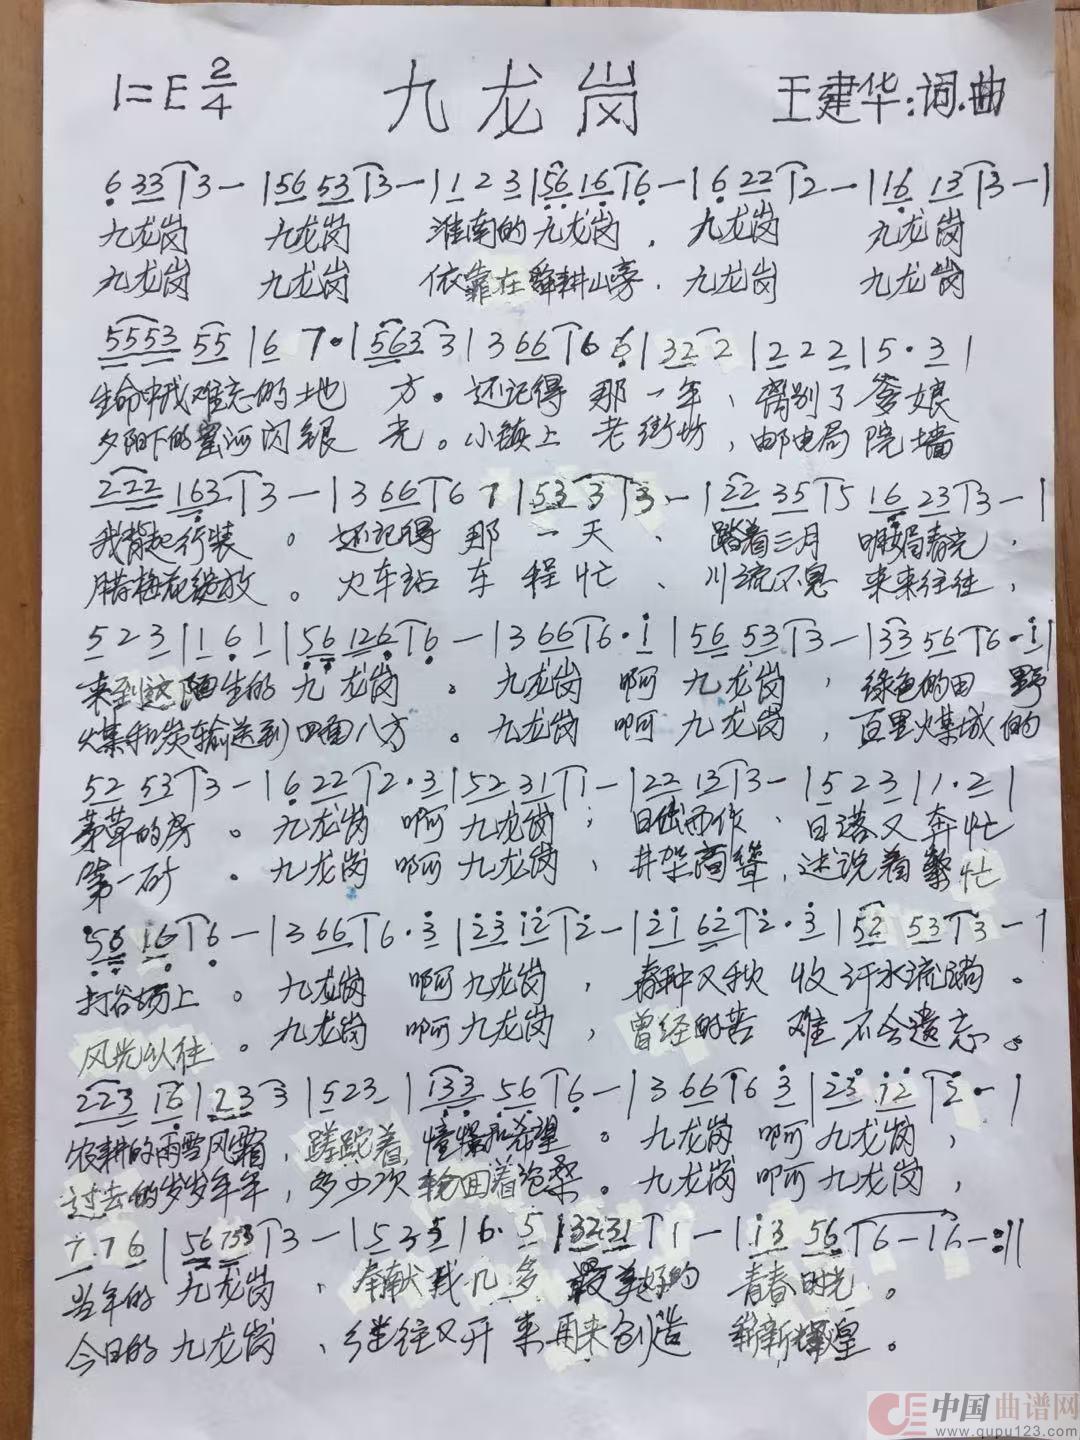 1=E 2/4 九龙岗 王建华:词.曲
6 33 | 3 — | 56 53 | 3 — | 1 2 3 | 56 16 | 6 — | 6 22 | 2 — | 16 13 | 3 — |
九龙岗 九龙岗 淮南的九龙岗, 九龙岗 九龙岗
九龙岗 九龙岗 依靠在舜耕山旁. 九龙岗 九龙岗
5553 55 | 6 7· | 563 3 | 3 66 | 6 6 | 32 2 | 2 2 2 | 5 · 3 |
生命中我难忘的地 方。还记得 那一年、离别了爹娘
夕阳下的窑河闪银 光。小镇上 老街坊,邮电局院墙
222 163 | 3 — | 3 66 | 6 7 | 53 3 | 3 — | 22 35 | 5 16 23 | 3 — |
我背起行装 。还记得 那一天、踏着三月 明媚春光.
腊梅花绽放。火车站 车程忙、川流不息 来来往往,
5 2 3 | 1 6 1 | 56 126 | 6 — | 3 66 | 6 · 1 | 56 53 | 3 — | 33 56 | 6 · 1 |
来到这陌生的九龙岗 。九龙岗 啊 九龙岗 , 绿色的田 野
煤和炭输送到四面八方 。九龙岗 啊 九龙岗 ,百里煤城的
52 53 | 3 — | 6 22 | 2 · 3 | 52 31 | 1 — | 22 13 | 3 — | 5 2 3 | 1 · 2 |
茅草的房 。九龙岗 啊 九龙岗 ; 日出而作 、日落又奔忙
第一矿 。九龙岗 啊 九龙岗 、井架高耸,述说着繁忙
56 16 | 6 — | 3 66 | 6 · 3 | 23 12 | 2 — | 21 62 | 2 · 3 | 52 53 | 3 — |
打谷场上 。九龙岗 啊九龙岗 , 春种又秋 收汗水流淌 。
风光以往 。九龙岗 啊九龙岗 , 曾经的苦 难不会遗忘。
223 16 | 23 3 | 523 | 133 56 | 6 — | 3 66 | 6 3 | 23 12 | 2 — |
农耕的雨雪风霜,蹉跎着 憧憬和希望 。九龙岗 啊九龙岗 ,
过去的岁岁年年,多少次轮回着沧桑。九龙岗 啊九龙岗 ,
7 · 7 6 | 56 753 | 3 — | 5 3 5 | 6 · 5 | 32 31 | 1 — | 13 56 | 6 — | 6 — :||
当年的 九龙岗 、奉献我几多 最美好的 青春时光 。
今日的九龙岗 、继往又开 来再来创造 崭新辉煌 。
中国曲谱网
www.qupu123.com